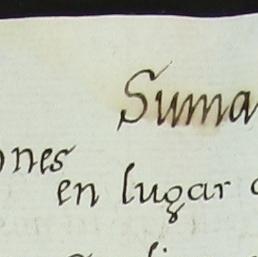 Suma
ones
en lugar